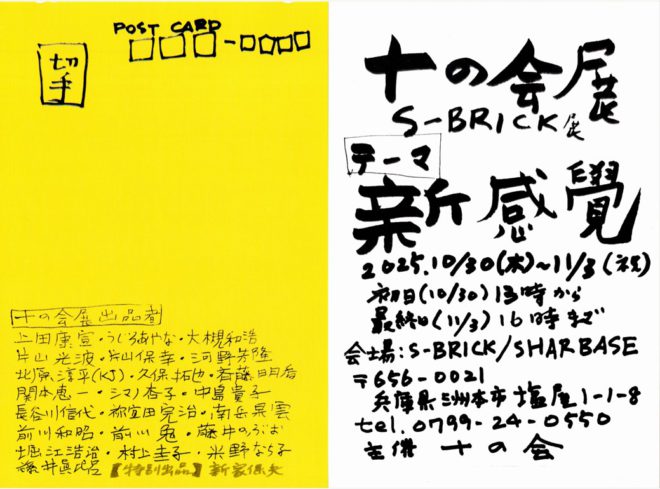 POST CARD
切手
十の会展出品者
上田康宣・うじあやな・大槻和浩
片山光波・片山保幸・河野芳隆
北原淳平(KJ)・久保拓也・斉藤明香
関本恵一・シマノ杏子・中島貴子
長谷川信代・弥宜田完治・南岳杲雲
前川和昭・前川兎・藤井のぶお
堀江浩治・村上圭子・米野なら子
藤井眞比呂【特別出品】新家保夫
十の会展
S-BRICK展
テーマ
新感覺
2025.10/30(木)~11/3(祝)
初日(10/30)13時から
最終日(11/3)16時まで
会場:S-BRICK/SHARBASE
〒656-0021
兵庫県洲本市塩屋1-1-8
tel.0799-24-0550
主催 十の会